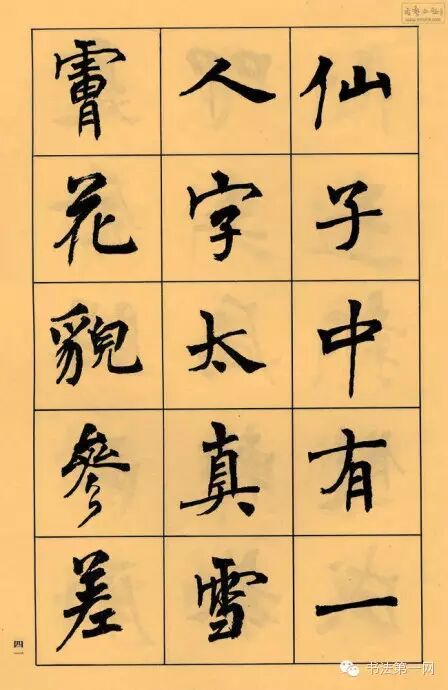 仙子中有一
人字太真雪
膚花貌參差
四一
书法第一网